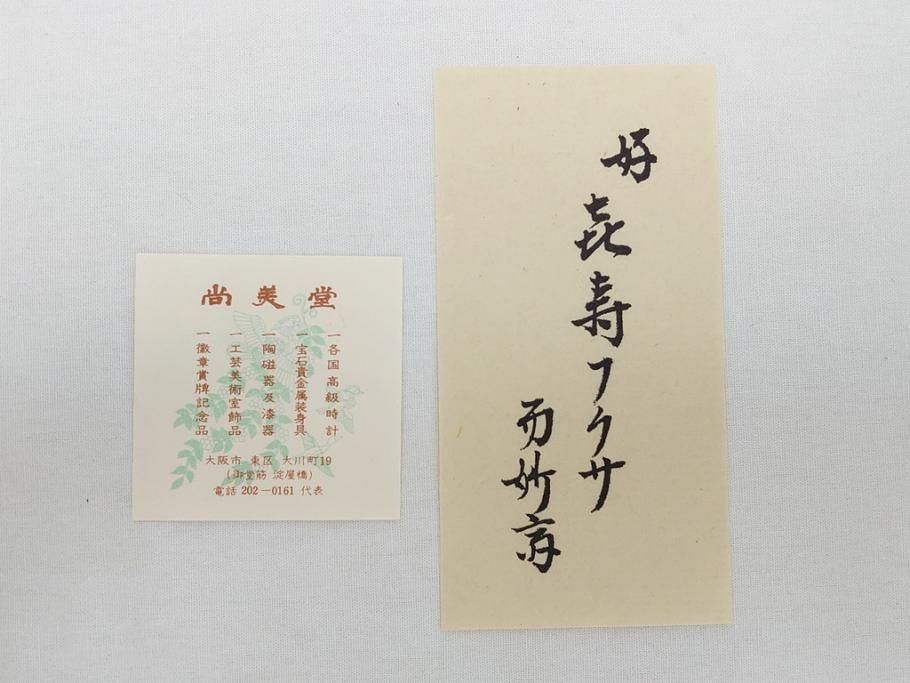 尚美堂
一各国高級時計
一宝石貴金属装身具
一陶磁器及漆器
一工芸美術室飾品
一徽章賞牌記念品
大阪市 東区 大川町19
(御堂筋 淀屋橋)
電話 202-0161 代表
好 㐂寿フクサ
而妙斎